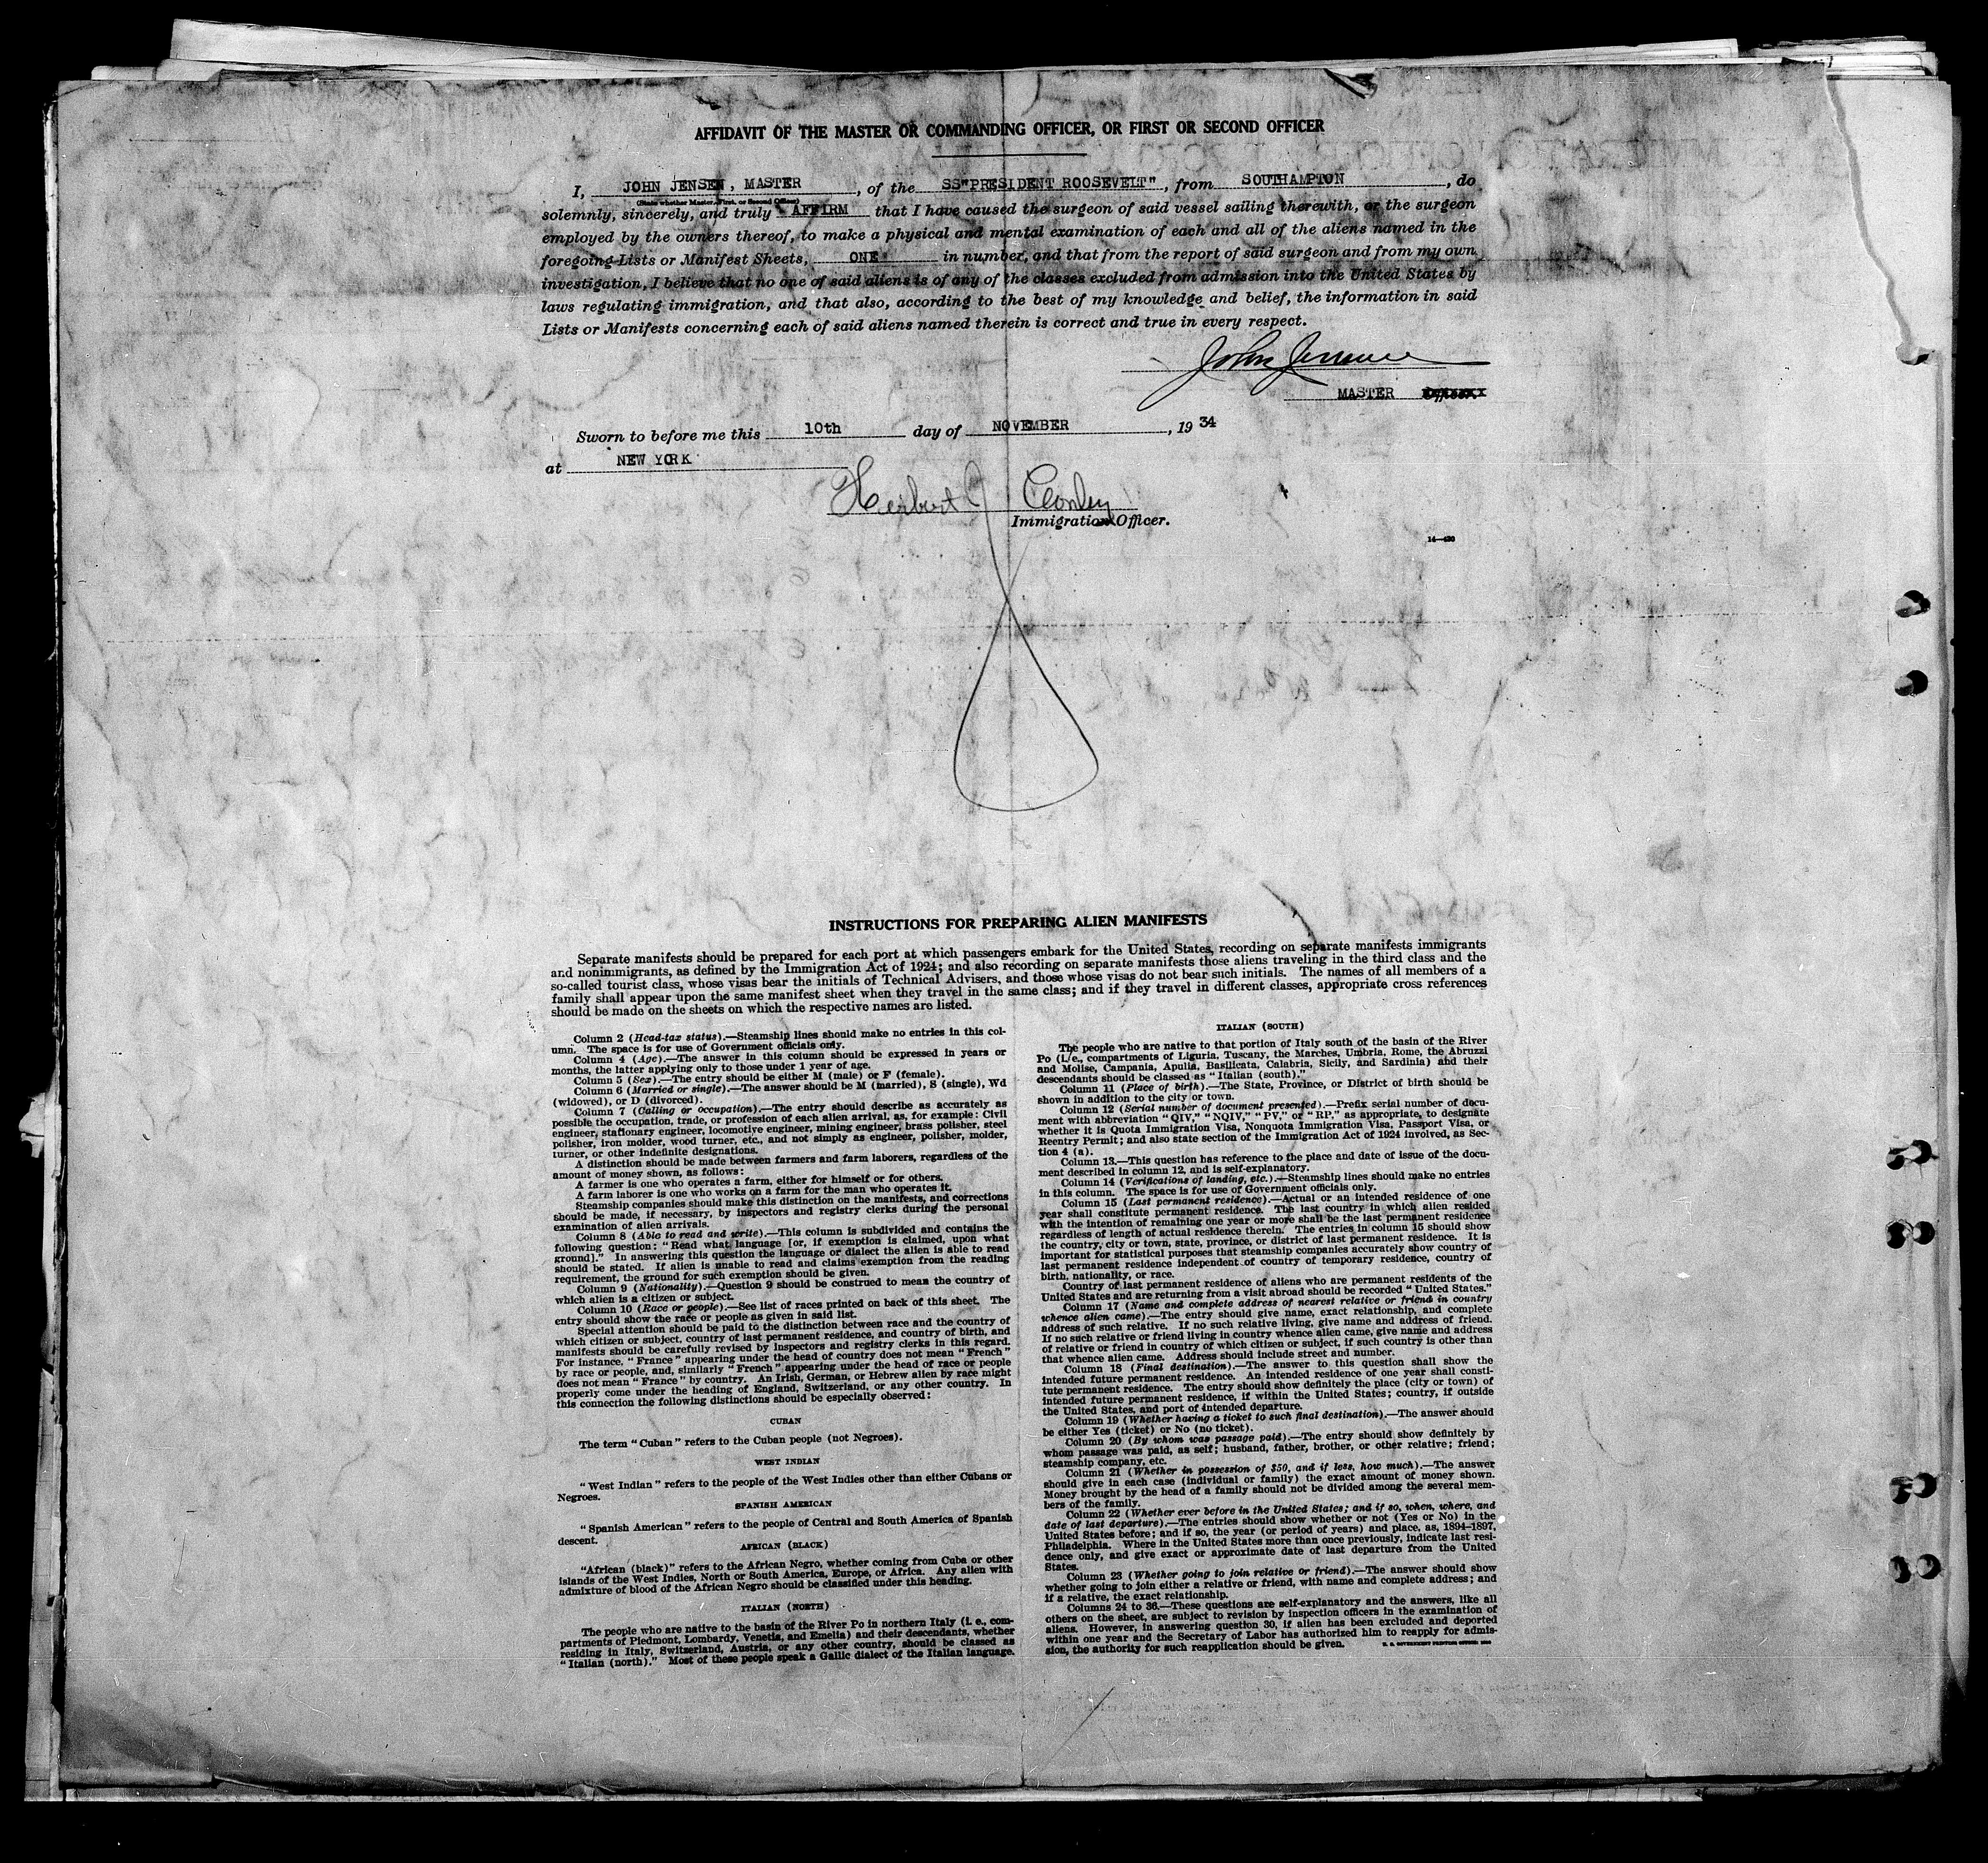 AFFIDAVIT OF THE MASTER OR COMMANDING OFFICER, OR FIRST OR SECOND OFFICER
I, JOHN JENSEN, MASTER, of the SS"PRESIDENT ROOSEVELT", from SOUTHAMPTON, do
(State whether Master, First, or Second Officer)
solemnly, sincerely, and truly AFFIRM that I have caused the surgeon of said vessel sailing therewith, or the surgeon
employed by the owners thereof, to make a physical and mental examination of each and all of the aliens named in the
foregoing Lists or Manifest Sheets, ONE in number, and that from the report of said surgeon and from my own
investigation, I believe that no one of said aliens is of any of the classes excluded from admission into the United States by
laws regulating immigration, and that also, according to the best of my knowledge and belief, the information in said
Lists or Manifests concerning each of said aliens named therein is correct and true in every respect.
John Jensen
MASTER
Sworn to before me this 10th day of NOVEMBER, 19 34
at NEW YORK
Herbert J Conley
Immigration Officer.
14—430
INSTRUCTIONS FOR PREPARING ALIEN MANIFESTS
Separate manifests should be prepared for each port at which passengers embark for the United States, recording on separate manifests immigrants
and nonimmigrants, as defined by the Immigration Act of 1924; and also recording on separate manifests those aliens traveling in the third class and the
so-called tourist class, whose visas bear the initials of Technical Advisers, and those whose visas do not bear such initials. The names of all members of a
family shall appear upon the same manifest sheet when they travel in the same class; and if they travel in different classes, appropriate cross references
should be made on the sheets on which the respective names are listed.
Column 2 (Head-tax status).—Steamship lines should make no entries in this col-
umn. The space is for use of Government officials only.
Column 4 (Age).—The answer in this column should be expressed in years or
months, the latter applying only to those under 1 year of age.
Column 5 (Sex).—The entry should be either M (male) or F (female).
Column 6 (Married or single).—The answer should be M (married), S (single), Wd
(widowed), or D (divorced).
Column 7 (Calling or occupation).—The entry should describe as accurately as
possible the occupation, trade, or profession of each alien arrival, as, for example: Civil
engineer, stationary engineer, locomotive engineer, mining engineer, brass polisher, steel
polisher, iron molder, wood turner, etc., and not simply as engineer, polisher, molder,
turner, or other indefinite designations.
A distinction should be made between farmers and farm laborers, regardless of the
amount of money shown, as follows:
A farmer is one who operates a farm, either for himself or for others.
A farm laborer is one who works on a farm for the man who operates it.
Steamship companies should make this distinction on the manifests, and corrections
should be made, if necessary, by inspectors and registry clerks during the personal
examination of alien arrivals.
Column 8 (Able to read and write).—This column is subdivided and contains the
following question: "Read what language [or, if exemption is claimed, upon what
ground]." In answering this question the language or dialect the alien is able to read
should be stated. If alien is unable to read and claims exemption from the reading
requirement, the ground for such exemption should be given.
Column 9 (Nationality).—Question 9 should be construed to mean the country of
which alien is a citizen or subject.
Column 10 (Race or people).—See list of races printed on back of this sheet. The
entry should show the race or people as given in said list.
Special attention should be paid to the distinction between race and the country of
which citizen or subject, country of last permanent residence, and country of birth, and
manifests should be carefully revised by inspectors and registry clerks in this regard.
For instance, "France" appearing under the head of country does not mean "French"
by race or people, and, similarly "French" appearing under the head of race or people
does not mean "France" by country. An Irish, German, or Hebrew alien by race might
properly come under the heading of England, Switzerland, or any other country. In
this connection the following distinctions should be especially observed:
CUBAN
The term "Cuban" refers to the Cuban people (not Negroes).
WEST INDIAN
"West Indian" refers to the people of the West Indies other than either Cubans or
Negroes.
SPANISH AMERICAN
"Spanish American" refers to the people of Central and South America of Spanish
descent.
AFRICAN (BLACK)
"African (black)" refers to the African Negro, whether coming from Cuba or other
islands of the West Indies, North or South America, Europe, or Africa. Any alien with
admixture of blood of the African Negro should be classified under this heading.
ITALIAN (NORTH)
The people who are native to the basin of the River Po in northern Italy (i. e., com-
partments of Piedmont, Lombardy, Venetia, and Emelia) and their descendants, whether
residing in Italy, Switzerland, Austria, or any other country, should be classed as
"Italian (north)." Most of these people speak a Gallic dialect of the Italian language.
ITALIAN (SOUTH)
The people who are native to that portion of Italy south of the basin of the River
Po (i. e., compartments of Liguria, Tuscany, the Marches, Umbria, Rome, the Abruzzi
and Molise, Campania, Apulia, Basilicata, Calabria, Sicily, and Sardinia) and their
descendants should be classed as "Italian (south)."
Column 11 (Place of birth).—The State, Province, or District of birth should be
shown in addition to the city or town.
Column 12 (Serial number of document presented).—Prefix serial number of docu-
ment with abbreviation "QIV," "NQIV," "PV," or "RP," as appropriate, to designate
whether it is Quota Immigration Visa, Nonquota Immigration Visa, Passport Visa, or
Reentry Permit; and also state section of the Immigration Act of 1924 involved, as Sec-
tion 4 (a).
Column 13.—This question has reference to the place and date of issue of the docu-
ment described in column 12, and is self-explanatory.
Column 14 (Verifications of landing, etc.).—Steamship lines should make no entries
in this column. The space is for use of Government officials only.
Column 15 (Last permanent residence).—Actual or an intended residence of one
year shall constitute permanent residence. The last country in which alien resided
with the intention of remaining one year or more shall be the last permanent residence
regardless of length of actual residence therein. The entries in column 15 should show
the country, city or town, state, province, or district of last permanent residence. It is
important for statistical purposes that steamship companies accurately show country of
last permanent residence independent of country of temporary residence, country of
birth, nationality, or race.
Country of last permanent residence of aliens who are permanent residents of the
United States and are returning from a visit abroad should be recorded "United States."
Column 17 (Name and complete address of nearest relative or friend in country
whence alien came).—The entry should give name, exact relationship, and complete
address of such relative. If no such relative living, give name and address of friend.
If no such relative or friend living in country whence alien came, give name and address
of relative or friend in country of which citizen or subject, if such country is other than
that whence alien came. Address should include street and number.
Column 18 (Final destination).—The answer to this question shall show the
intended future permanent residence. An intended residence of one year shall consti-
tute permanent residence. The entry should show definitely the place (city or town) of
intended future permanent residence, if within the United States; country, if outside
the United States, and port of intended departure.
Column 19 (Whether having a ticket to such final destination).—The answer should
be either Yes (ticket) or No (no ticket).
Column 20 (By whom was passage paid).—The entry should show definitely by
whom passage was paid, as self; husband, father, brother, or other relative; friend;
steamship company, etc.
Column 21 (Whether in possession of $50, and if less, how much).—The answer
should give in each case (individual or family) the exact amount of money shown.
Money brought by the head of a family should not be divided among the several mem-
bers of the family.
Column 22 (Whether ever before in the United States; and if so, when, where, and
date of last departure).—The entries should show whether or not (Yes or No) in the
United States before; and if so, the year (or period of years) and place, as, 1894–1897,
Philadelphia. Where in the United States more than once previously, indicate last resi-
dence only, and give exact or approximate date of last departure from the United
States.
Column 23 (Whether going to join relative or friend).—The answer should show
whether going to join either a relative or friend, with name and complete address; and
if a relative, the exact relationship.
Columns 24 to 36.—These questions are self-explanatory and the answers, like all
others on the sheet, are subject to revision by inspection officers in the examination of
aliens. However, in answering question 30, if alien has been excluded and deported
within one year and the Secretary of Labor has authorized him to reapply for admis-
sion, the authority for such reapplication should be given.